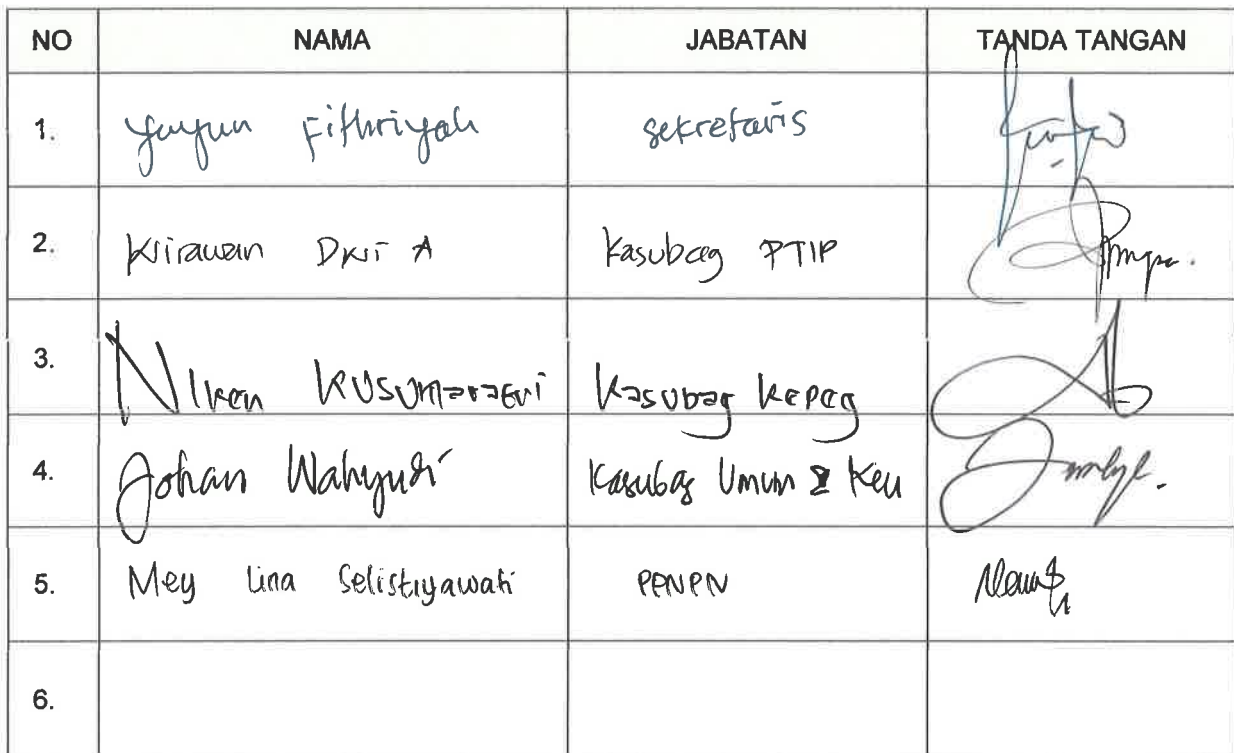 NO NAMA JABATAN TANDA TANGAN
1. Yuyun Fithriyah sekretaris
2. Wirawan Dwi A Kasubag PTIP
3. Niken Kusumaratri Kasubag Kepeg
4. Johan Wahyudi Kasubag Umum & Keu
5. Mey Lina Selistiyawati PPNPN
6.